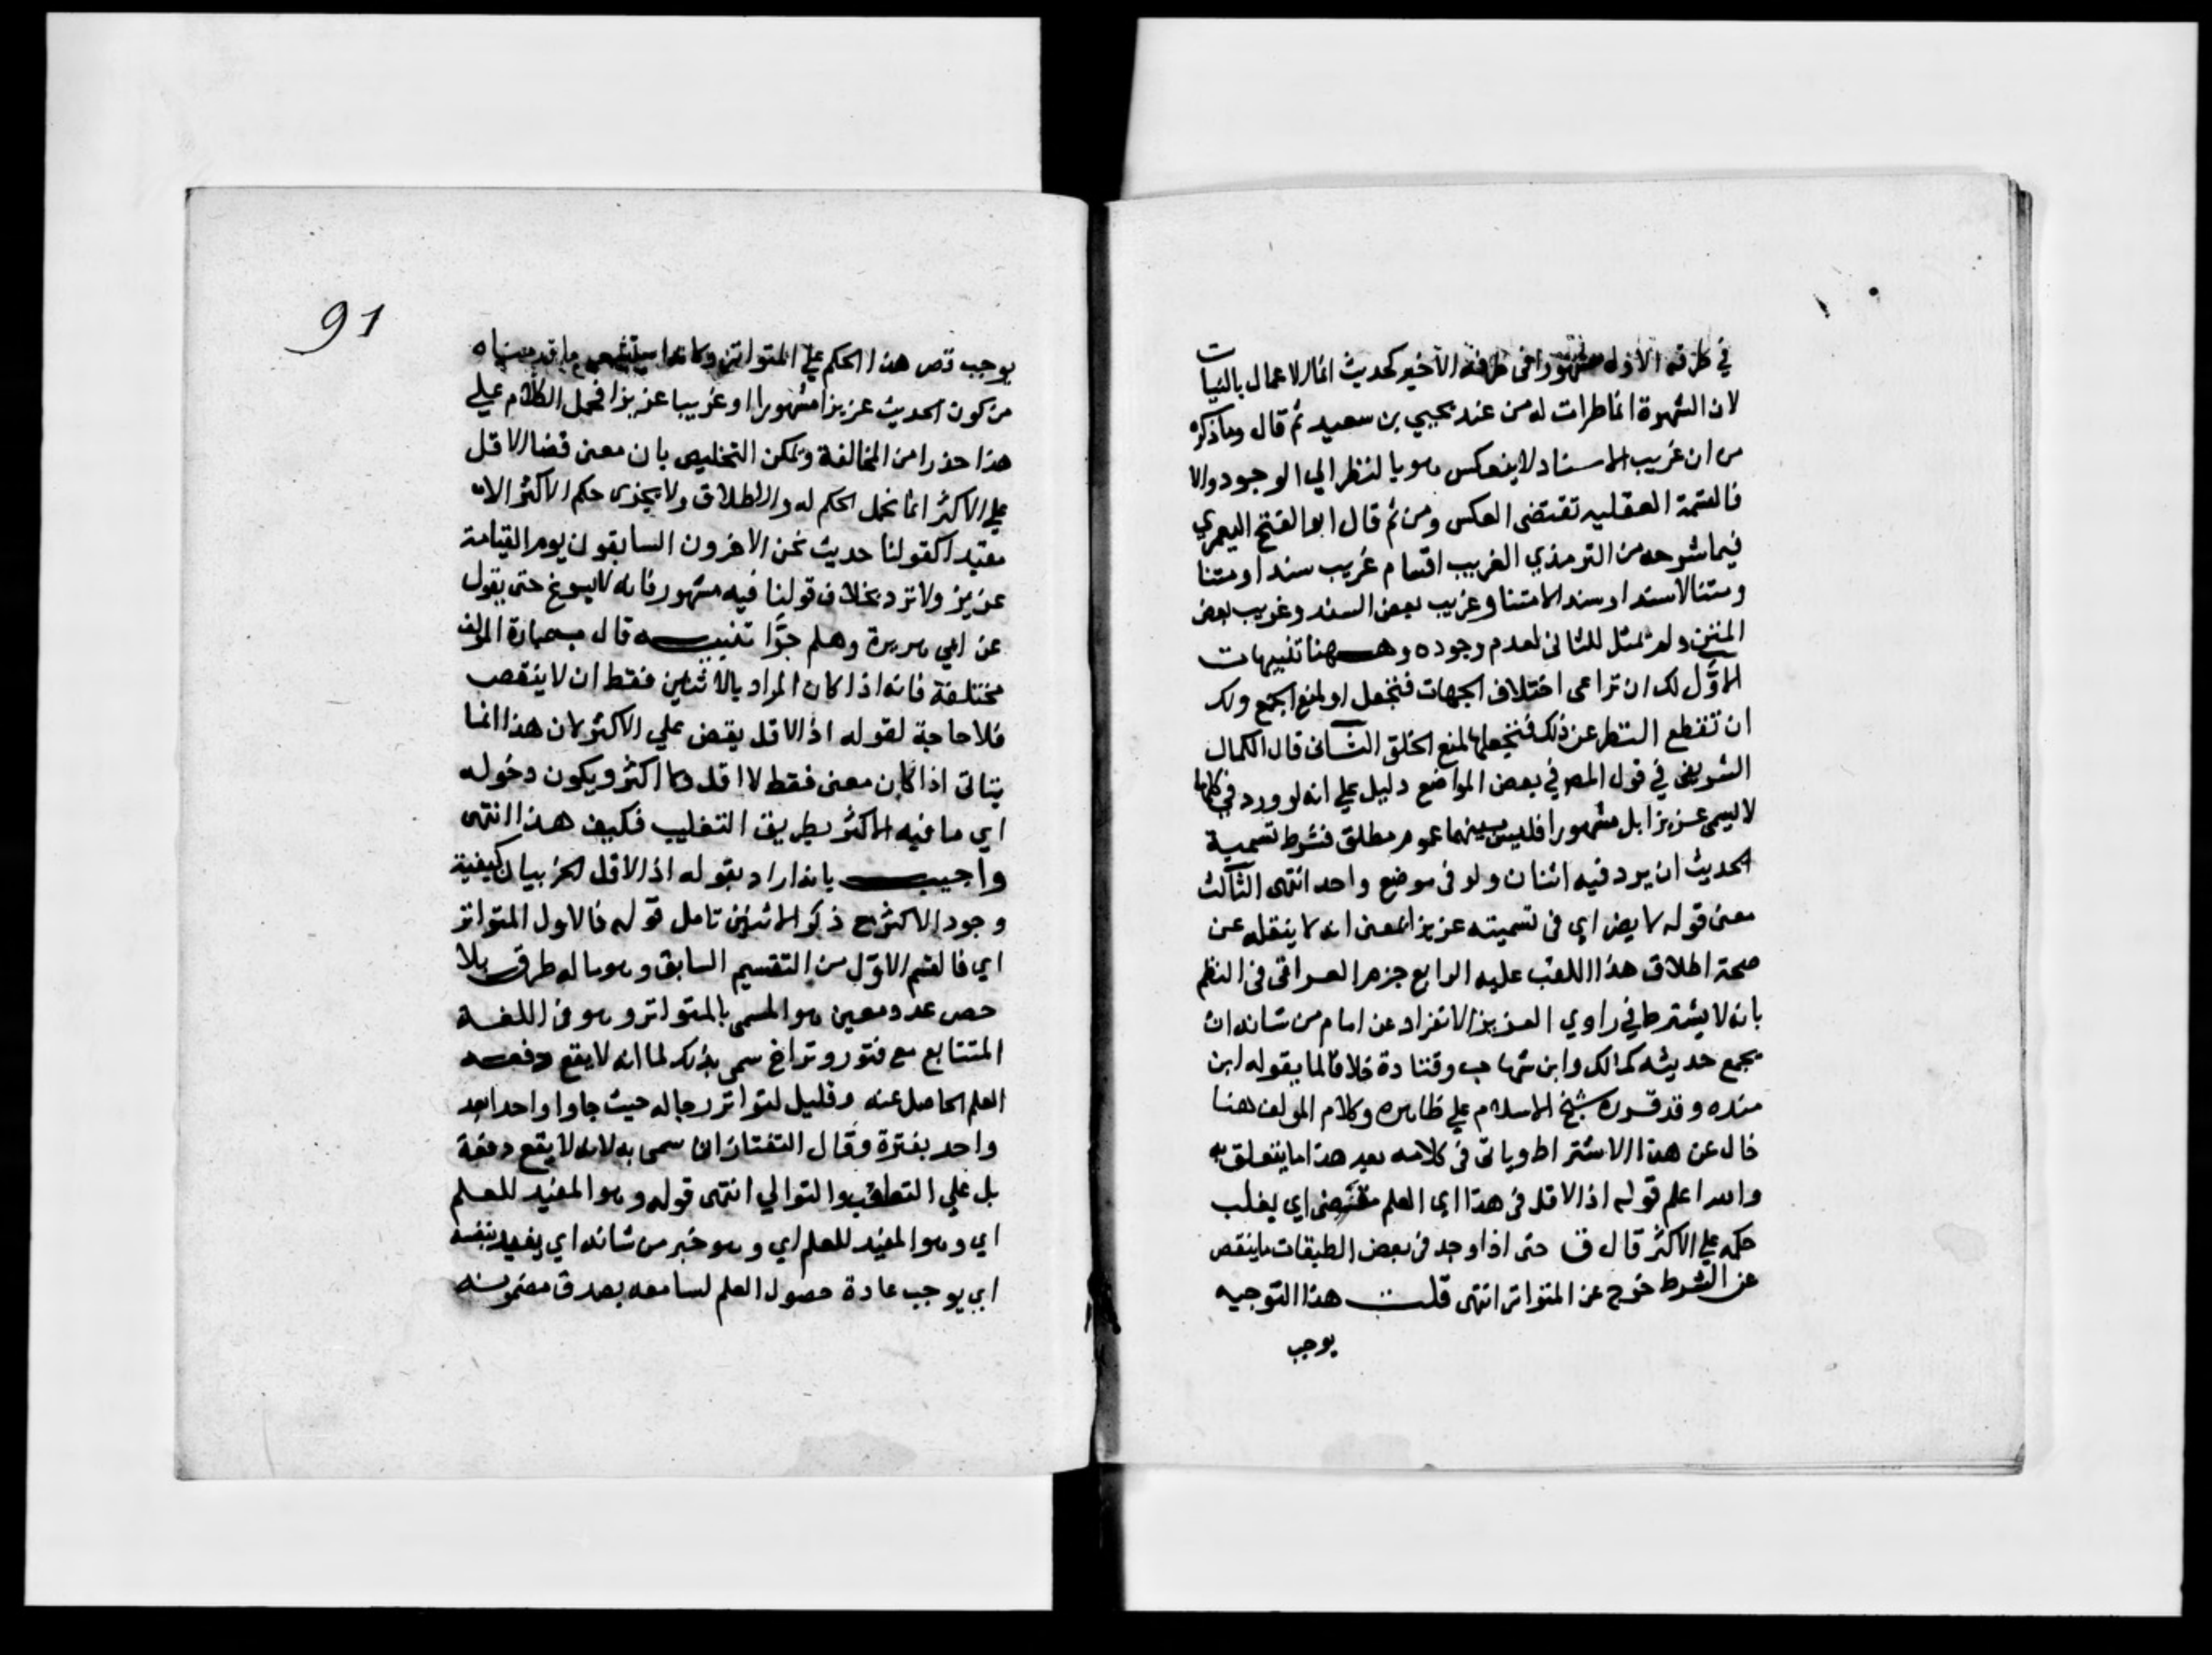 في طرفه الاول مشهورا فى طرفه الأخير كحديث انما الاعمال بالنيات
لان الشهوة انما طرات له من عند يحيي بن سعيد ثم قال وما ذكره
من ان غريب الاسناد لا ينعكس هو بالنظر الي الوجود والا
فالقسمة العقليه تقتضى العكس ومن ثم قال ابو الفتح اليعمري
فيما شرحه من الترمذي الغريب اقسام غريب سندا ومتنا
ومتنا لا سندا وسندا لا متنا وغريب بعض السند وغريب بعض
المتن ولم يمثل للثانى لعدم وجوده وههنا تنبيهات
الاوّل لك ان تراعى اختلاف الجهات فتجعل او لمنع الجمع ولك
ان تقطع النظر عن ذلك فتجعلها لمنع الخلو الثانى قال الكمال
الشريفى في قول المصر في بعض المواضع دليل علي انه لو ورد في كلها
لا يسمى عزيزا بل مشهورا فليس بينهما عموم مطلق فشرط تسمية
الحديث ان يرد فيه اثنان ولو فى موضع واحد انتهى الثالث
معنى قوله لا يضر اي فى تسميته عزيزا بمعنى انه لا ينقله عن
صحة اطلاق هذا اللقب عليه الرابع جزم العراقى فى النظم
بانه لا يشترط في راوي العزيز الانفراد عن امام من شانه ان
يجمع حديثه كمالك وابن شهاب وقتادة خلافا لما يقوله ابن
منده وقد قرره شيخ الاسلام علي ظاهره وكلام المولف هنا
خال عن هذا الاشتراط وياتى فى كلامه بعد هذا ما يتعلق به
والله اعلم قوله اذ الاقل فى هذا اي العلم مقتضى اي يغلب
حكمه علي الاكثر قال ق حتى اذا وجد فى بعض الطبقات ما ينقص
عن الشرط خرج عن المتواتر انتهى قلت هذا التوجيه
يوجب
91
يوجب قصر هذا الحكم علي المتواتر وكانه استشعر ما قدمناه
من كون الحديث عزيزا مشهورا او غريبا عزيزا فحمل الكلام علي
هذا حذرا من المخالفة ويمكن التخليص بان معنى قضا الاقل
علي الاكثر انما نحمل الحكم له والاطلاق ولا يجزى حكم الاكثر الا
مقيدا كقولنا حديث نحن الاخرون السابقون يوم القيامة
عزيز ولا تزد بخلاف قولنا فيه مشهور فانه لا يسوغ حتى يقول
عن ابي هريرة وهلم جرّا تنبيه قال ب عبارة المولف
مختلفة فانه اذا كان المراد بالاثنين فقط ان لا ينقص
فلا حاجة لقوله اذ الاقل يقض علي الاكثر لان هذا انما
يتاتى اذا كان معنى فقط لا اقل ولا اكثر ويكون دخوله
اي ما فيه الاكثر بطريق التغليب فكيف هذا انتهى
واجيب بانه اراد بقوله اذ الاقل الخ بيان كيفية
وجود الاكثر مع ذكر الاثنين تامل قوله فالاول المتواتر
اي فالقسم الاوّل من التقسيم السابق وهو ما له طرق بلا
حصر عدد معين هو المسمى بالمتواتر وهو فى اللغة
المتتابع مع فتور وتراخ سمى بذلك لما انه لا يقع دفعه
العلم الحاصل عنه وقليل لتواتر رجاله حيث جاوا واحدا بعد
واحد بفترة وقال التفتازانى سمى به لانه لا يقع دفعة
بل علي التعاقب والتوالي انتهى قوله وهو المفيد للعلم
اي وهو المفيد للعلم اي وهو خبر من شانه اي يفيد بنفسه
اي يوجب عادة حصول العلم لسامعه بصدق مضمونه